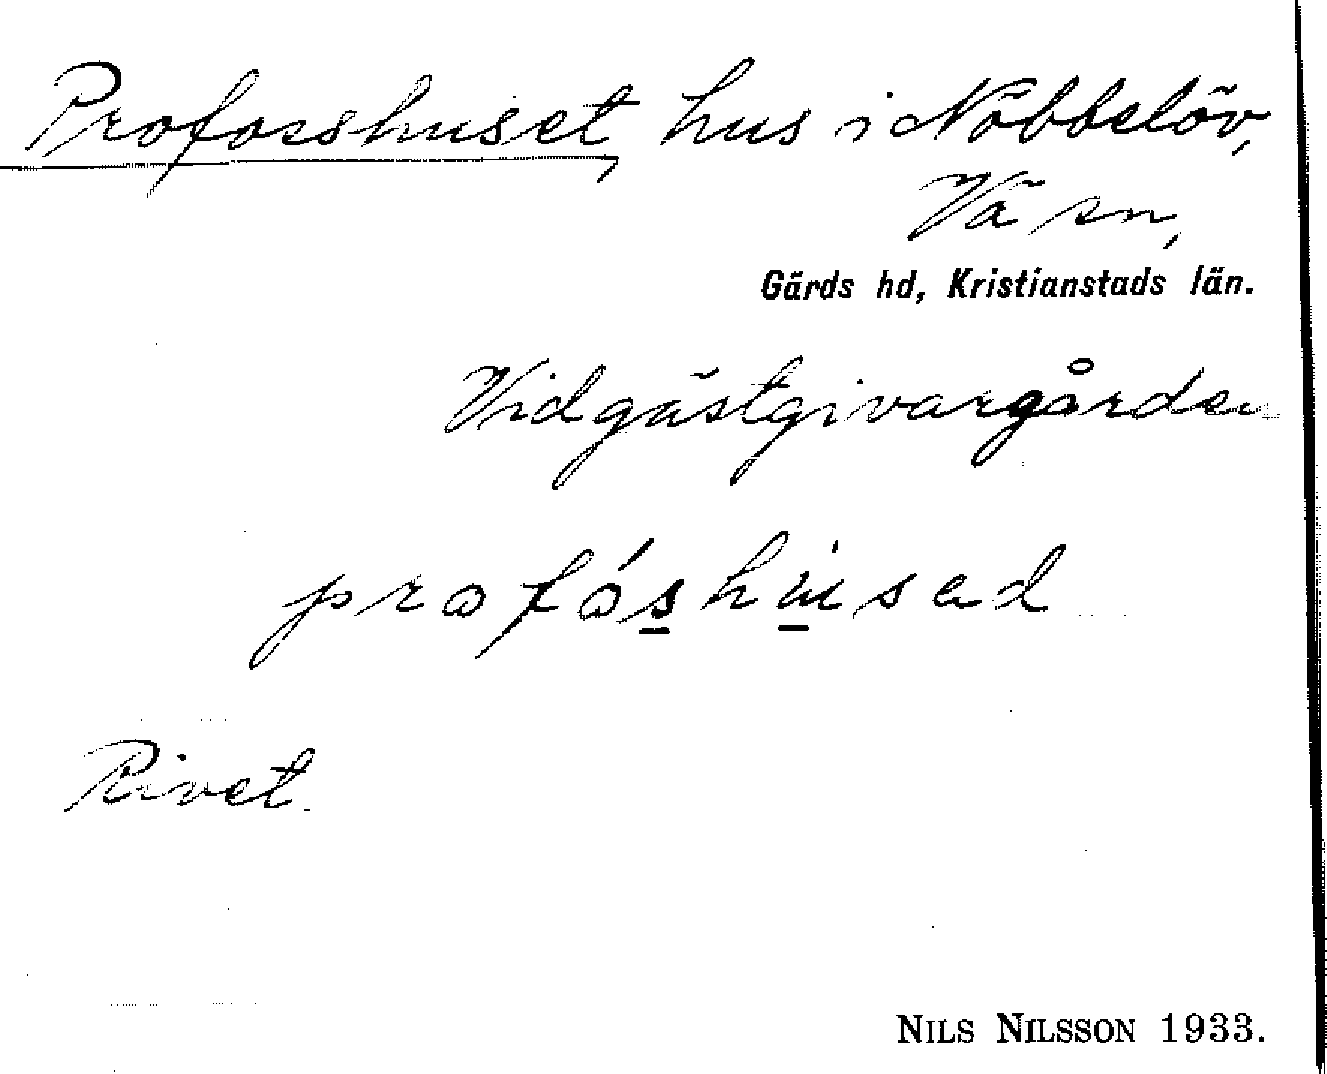 Profosshuset, hus i Nöbbelöv,
Vä sn,
Gärds hd, Kristianstads län.
Vid gästgivargården
profóshúsad
Rivet.
NILS NILSSON 1933.